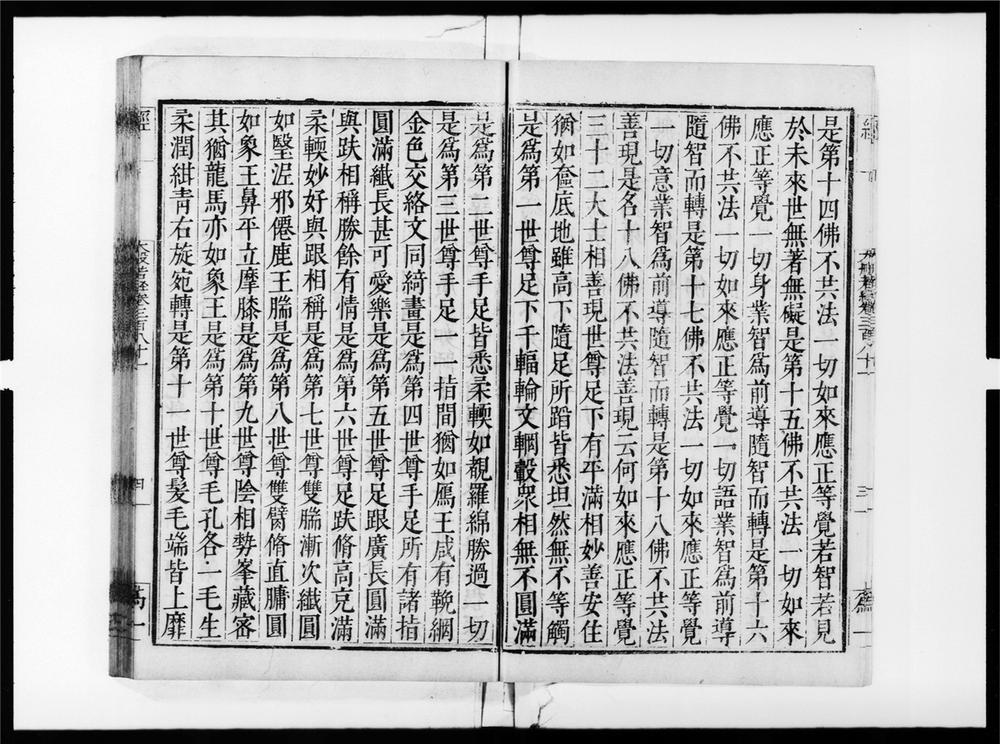 是第十四佛不共法一切如來應正等覺若智若見
於未來世無著無礙是第十五佛不共法一切如來
應正等覺一切身業智爲前導隨智而轉是第十六
佛不共法一切如來應正等覺一切語業智爲前導
隨智而轉是第十七佛不共法一切如來應正等覺
一切意業智爲前導隨智而轉是第十八佛不共法
善現是名十八佛不共法善現云何如來應正等覺
三十二大士相善現世尊足下有平滿相妙善安住
猶如奩底地雖高下隨足所蹈皆悉坦然無不等觸
是爲第一世尊足下千輻輪文輞轂衆相無不圓滿
是爲第二世尊手足皆悉柔輭如覩羅綿勝過一切
是爲第三世尊手足一一指間猶如鴈王咸有鞔網
金色交絡文同綺畫是爲第四世尊手足所有諸指
圓滿纖長甚可愛樂是爲第五世尊足跟廣長圓滿
與趺相稱勝餘有情是爲第六世尊足趺脩高充滿
柔輭妙好與跟相稱是爲第七世尊雙腨漸次纖圓
如瑿泥邪僊鹿王腨是爲第八世尊雙臂脩直𦟛圓
如象王鼻平立摩膝是爲第九世尊陰相勢峯藏密
其猶龍馬亦如象王是爲第十世尊毛孔各一毛生
柔潤紺靑右旋宛轉是第十一世尊髮毛端皆上靡
經
大般若經卷三百八十一
四